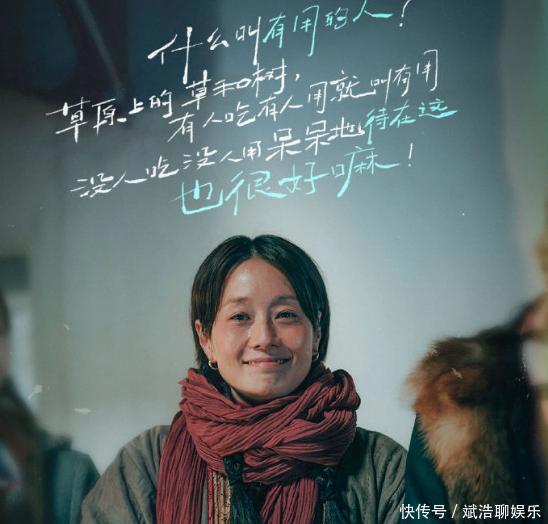 什么叫有用的人?
草原上的草和树,
有人吃有人用就叫有用
没人吃没人用呆呆地待在这
也很好嘛!
快传号/斌浩聊娱乐